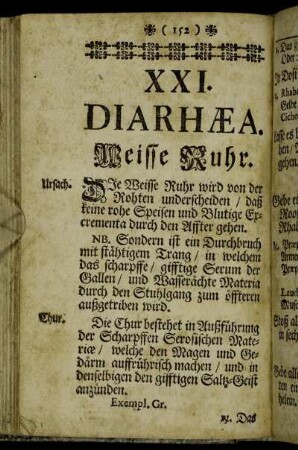 ( 152 )
XXI.
DIARHÆA.
Weisse Ruhr.
Ursach.
DIe Weisse Ruhr wird von der
Rohten underscheiden / daß
keine rohe Speisen und Blutige Ex-
crementa durch den Affter gehen.
NB. Sondern ist ein Durchbruch
mit stähtigem Trang / in welchem
das scharpffe / gifftige Serum der
Gallen / und Wasserächte Materia
durch den Stuhlgang zum öffteren
außgetriben wird.
Chur.
Die Chur bestehet in Außführung
der Scharpffen Serosischen Mate-
riæ / welche den Magen und Ge-
därm auffrührisch machen / und in
denselbigen den gifftigen Saltz-Geist
anzünden.
Exempl. Gr.
Das